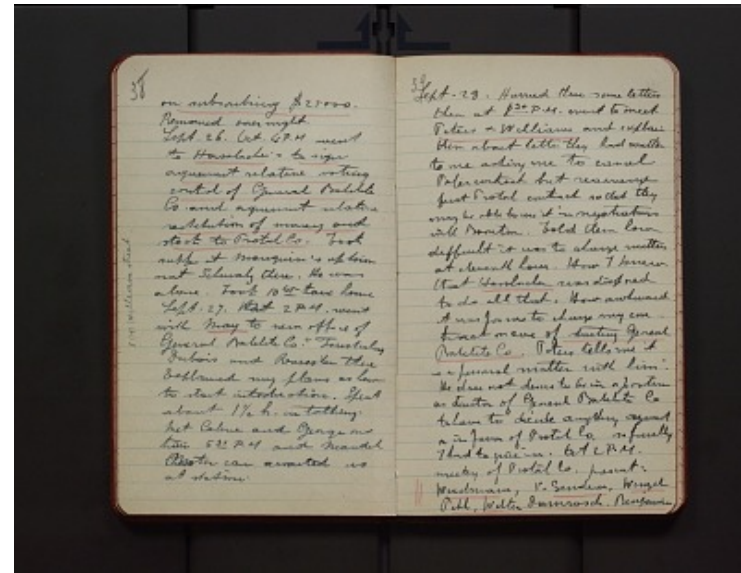 38
on subscribing $25000.
Remained overnight
Sept. 26. At 6 P.M. went
to Hasslacher's to sign
agreement relative voting
control of General Bakelite
Co. and agreement relative
restitution of money and
stock to Protal Co. Took
supper at Mouquin's uptown
met Schwalz there. He was
alone. Took 10 train home
Sept. 27. At 2 P.M. went
with May to new office of
General Bakelite Co.
Dubois and Rossiter there
Explained my plans as how
to start introduction. Spent
about 1½ h. in talking.
Met Celine and George on
train 5 P.M. and Meandel
car awaited us
at station.
William Street
39
Sept. 29. Hurried thru some letters
then at P.M. went to meet
Peters & Williams and explain
them about letter they had written
to me asking me to cancel
contract but rearrange
first Protal contract so that they
may be able to use it in negotiations
with Boonton. Told them how
difficult it was to change matters
at eleventh hour. How I knew
that Hasslacher was disposed
to do all that. How awkward
it was for me to change my
on eve of starting General
Bakelite Co. Peters tells me it
is a personal matter with him.
He does not desire to be in a position
as director of General Bakelite Co
to have to decide anything against
or in favor of Protal Co. so finally
I had to give in. At 2 P.M.
meeting of Protal Co. present:
Wiedmann, Wenzel
Pohl, Walter Damrosch, Benjamin